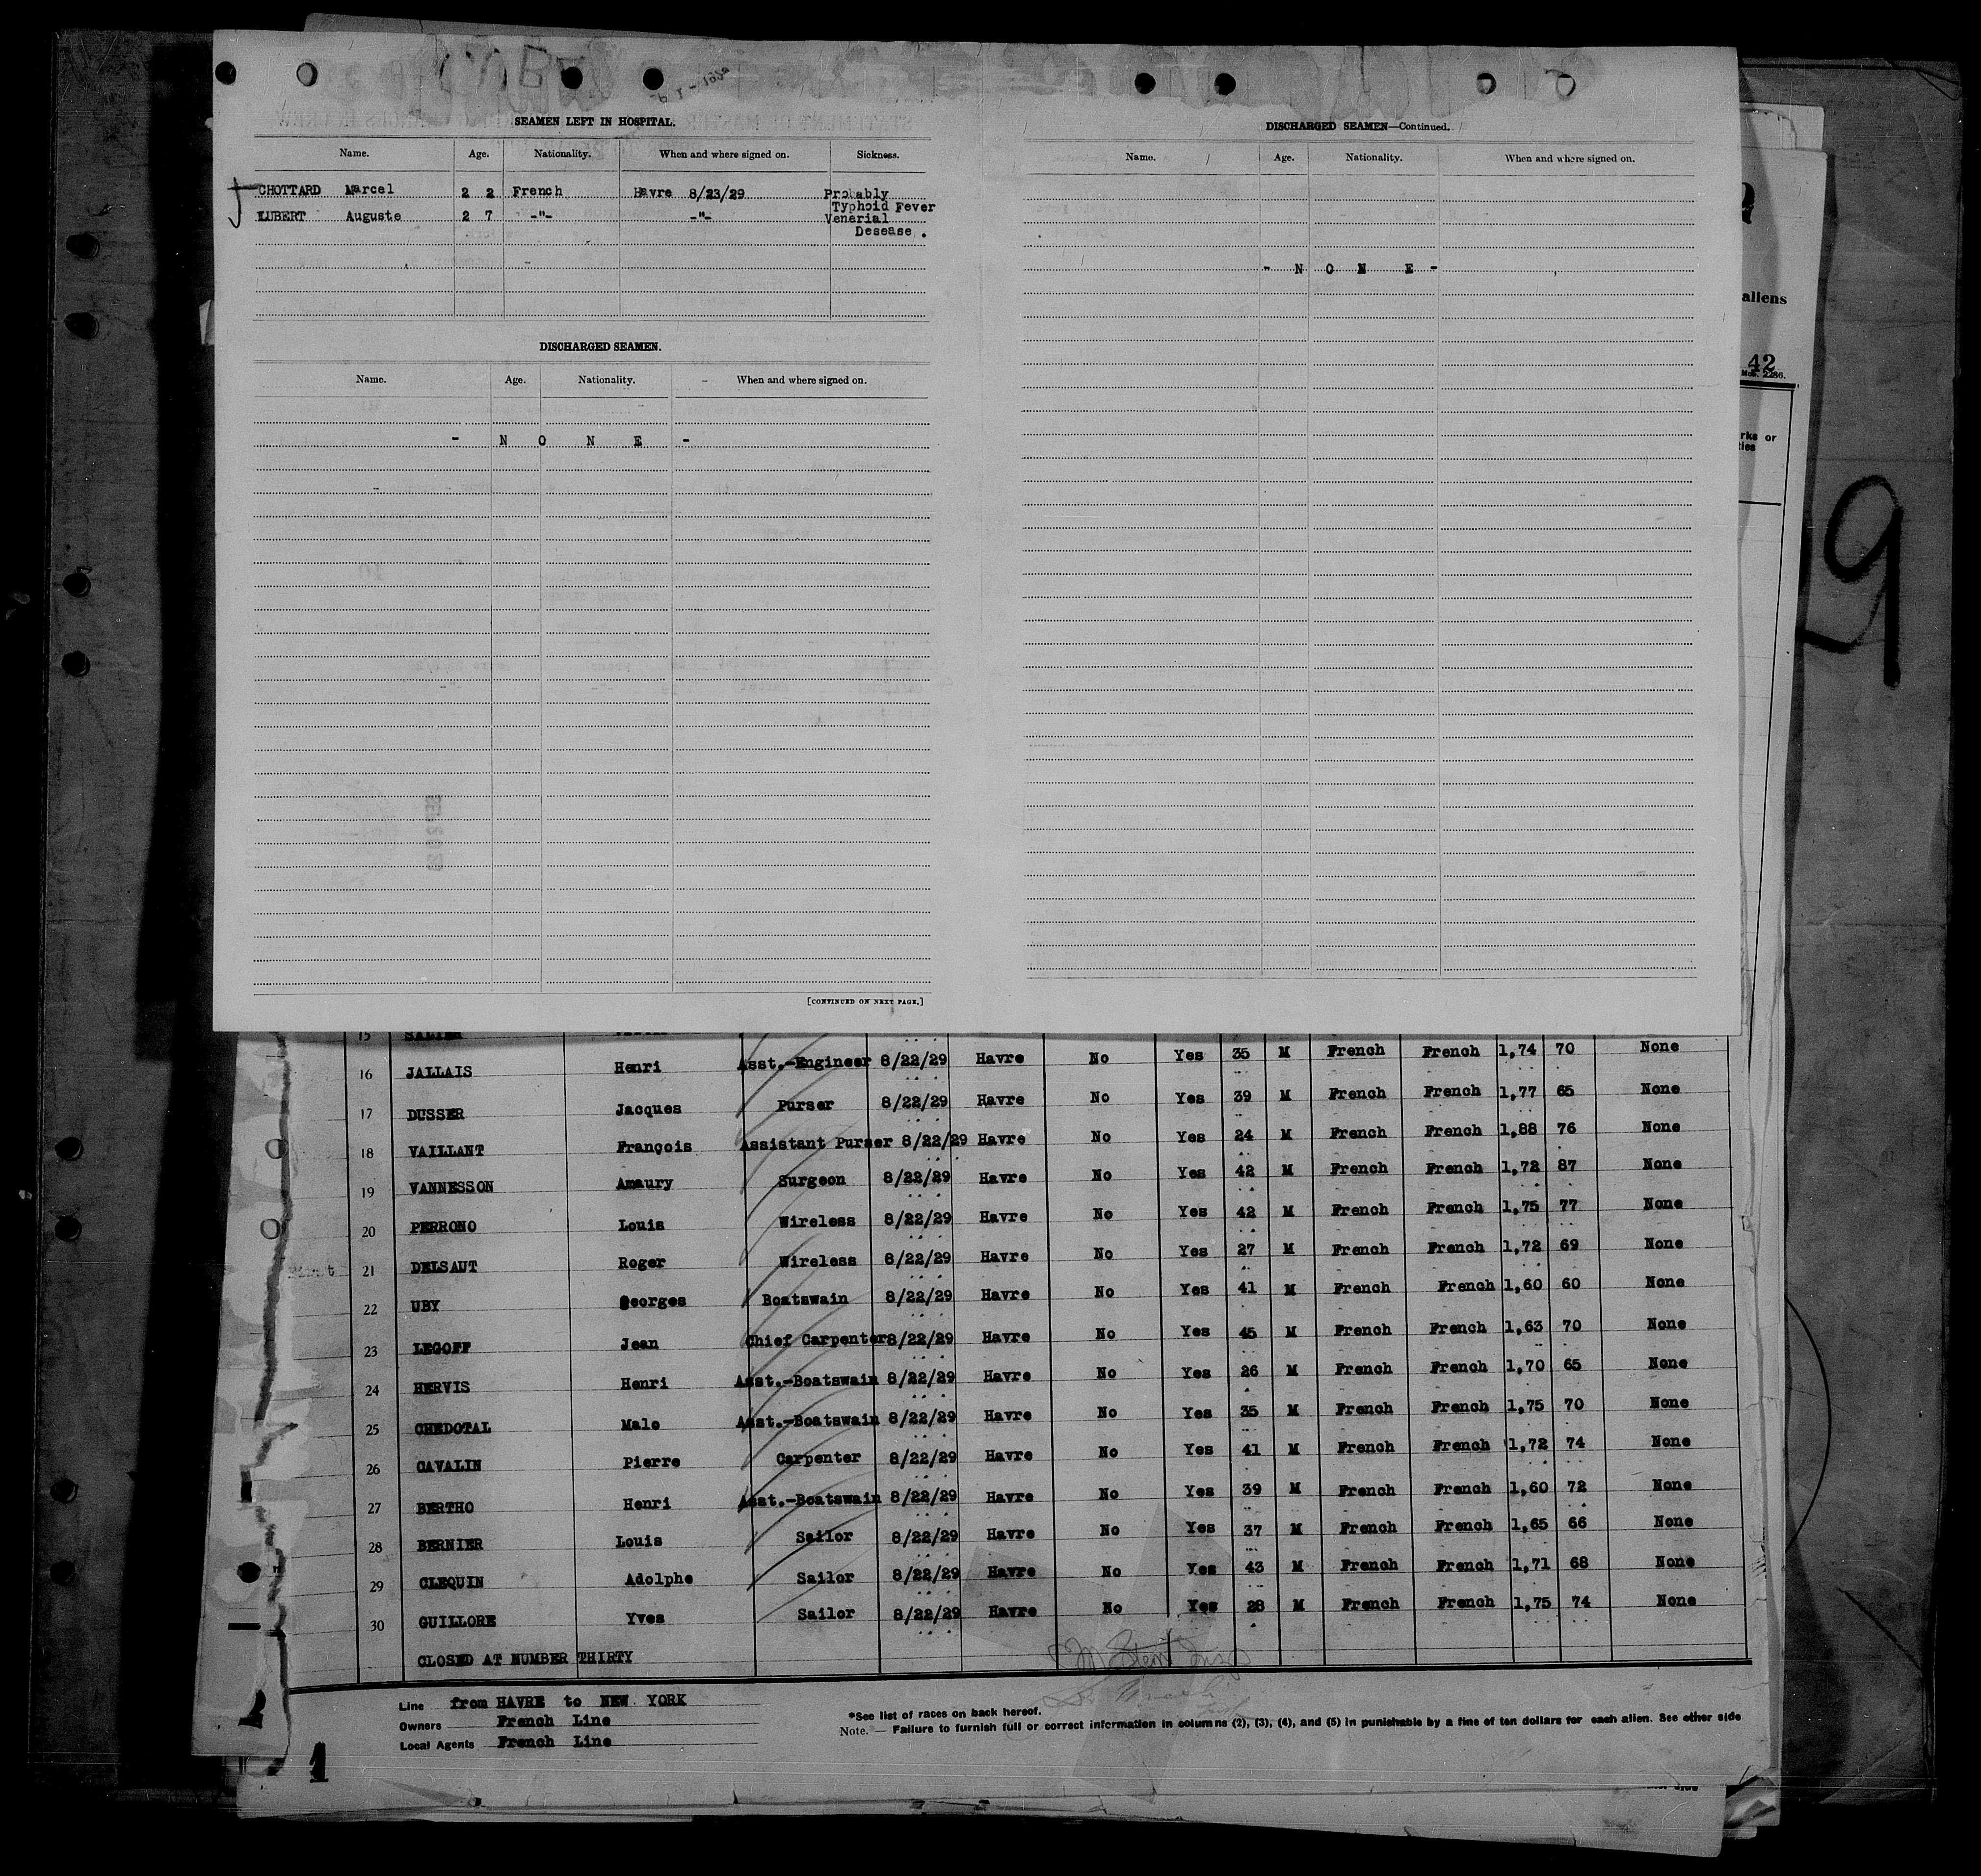 SEAMEN LEFT IN HOSPITAL.
Name. Age. Nationality. When and where signed on. Sickness.
CHOTTARD Marcel 2 2 French Havre 8/23/29 Probably
Typhoid Fever
LUBERT Auguste 2 7 -"- -"- Venerial
Desease .
DISCHARGED SEAMEN.
Name. Age. Nationality. When and where signed on.
- N O N E -
[CONTINUED ON NEXT PAGE.]
DISCHARGED SEAMEN—Continued.
Name. Age. Nationality. When and where signed on.
- N O N E -
aliens
42
rks or
ties
9
15
16 JALLAIS Henri Asst.-Engineer 8/22/29 Havre No Yes 35 M French French 1,74 70 None
17 DUSSER Jacques Purser 8/22/29 Havre No Yes 39 M French French 1,77 65 None
18 VAILLANT François Assistant Purser 8/22/29 Havre No Yes 24 M French French 1,88 76 None
19 VANNESSON Amaury Surgeon 8/22/29 Havre No Yes 42 M French French 1,72 87 None
20 PERRONO Louis Wireless 8/22/29 Havre No Yes 42 M French French 1,75 77 None
21 DELSAUT Roger Wireless 8/22/29 Havre No Yes 27 M French French 1,72 69 None
22 UBY Georges Boatswain 8/22/29 Havre No Yes 41 M French French 1,60 60 None
23 LEGOFF Jean Chief Carpenter 8/22/29 Havre No Yes 45 M French French 1,63 70 None
24 HERVIS Henri Asst.-Boatswain 8/22/29 Havre No Yes 26 M French French 1,70 65 None
25 CHEDOTAL Malo Asst.-Boatswain 8/22/29 Havre No Yes 35 M French French 1,75 70 None
26 CAVALIN Pierre Carpenter 8/22/29 Havre No Yes 41 M French French 1,72 74 None
27 BERTHO Henri Asst.-Boatswain 8/22/29 Havre No Yes 39 M French French 1,60 72 None
28 BERNIER Louis Sailor 8/22/29 Havre No Yes 37 M French French 1,65 66 None
29 CLEQUIN Adolphe Sailor 8/22/29 Havre No Yes 43 M French French 1,71 68 None
30 GUILLORE Yves Sailor 8/22/29 Havre No Yes 28 M French French 1,75 74 None
CLOSED AT NUMBER THIRTY
Line from HAVRE to NEW YORK
Owners French Line
Local Agents French Line
*See list of races on back hereof.
Note. — Failure to furnish full or correct information in columns (2), (3), (4), and (5) in punishable by a fine of ten dollars for each alien. See other side
1